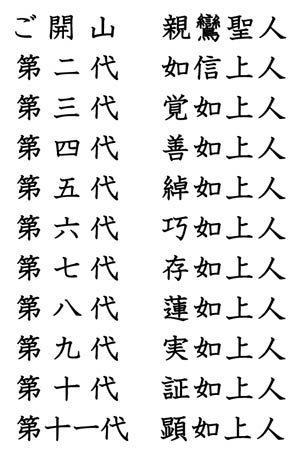 ご開山 親鸞聖人
第二代 如信上人
第三代 覚如上人
第四代 善如上人
第五代 綽如上人
第六代 巧如上人
第七代 存如上人
第八代 蓮如上人
第九代 実如上人
第十代 証如上人
第十一代 顕如上人